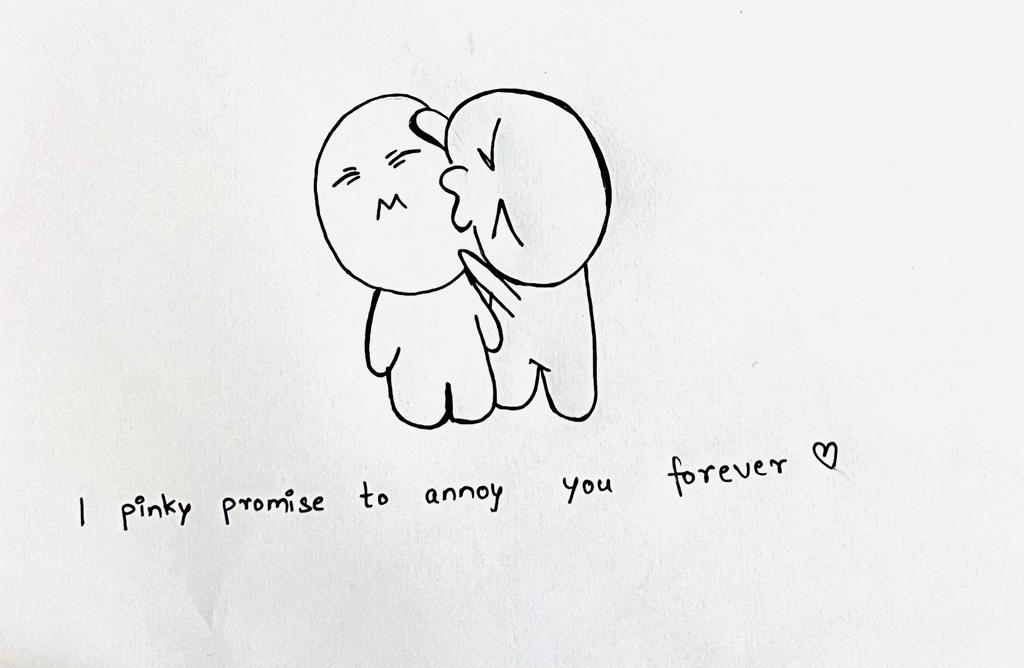 I pinky promise to annoy you forever ♡